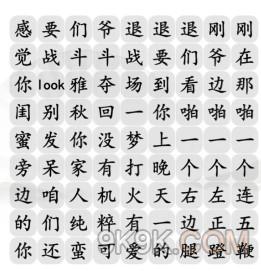 感要们爷退退退刚刚
觉战斗斗战要们爷在
你look雅夺场到看边那
闺别秋回一你啪啪啪
蜜发你没梦上一一一
旁呆家有打晚个个个
边咱人机火天右左连
的们纯粹有一边正五
你还蛮可爱的腿蹬鞭
K9K9.COM